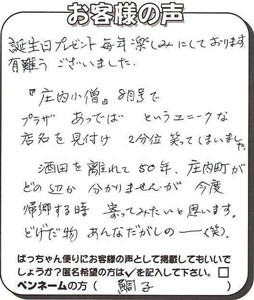 お客様の声
誕生日プレゼント毎年楽しみにしております
有難うございました.
『庄内小僧』8月号で
プラザ あっでば というユニークな
店名を見付け 2分位 笑ってしまいました
酒田を離れて50年、庄内町が
どの辺か 分かりませんが 今度
帰郷する時 寄ってみたいと思います。
どげだ物 あんなだがしのー(笑).
ばっちゃん便りにお客様の声として掲載してもいいで
しょうか?匿名希望の方は✓を記入して下さい。□
ペンネームの方( 鯛子 )